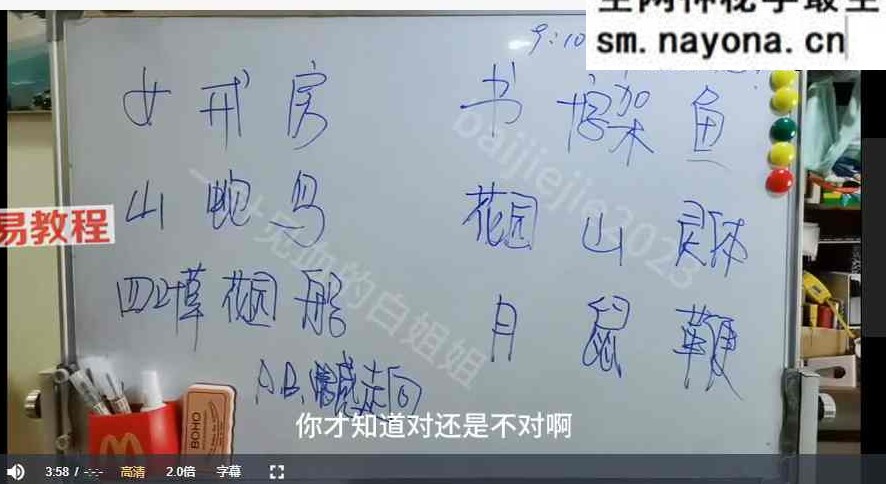 全网神秘学最全
sm.nayona.cn
9:10
女 戒 房 书 十字架 鱼
山 蛇 鸟 花园 山
四叶草 花园 船 月 鼠 鞭
AB情感走向
baijiejie2023
的白姐姐
易教程
M
BOHO
你才知道对还是不对啊
3:58 / -:-:- 高清 2.0倍 字幕